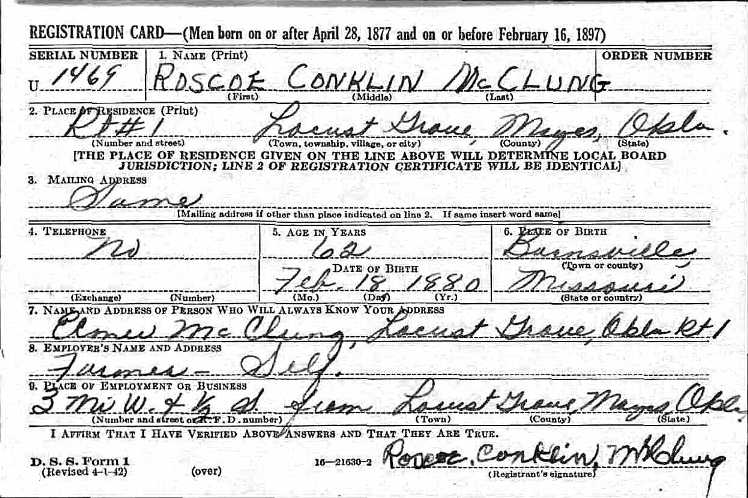 REGISTRATION CARD—(Men born on or after April 28, 1877 and on or before February 16, 1897)
SERIAL NUMBER 1. NAME (Print) ORDER NUMBER
U 1469 ROSCOE CONKLIN MCCLUNG
(First) (Middle) (Last)
2. PLACE OF RESIDENCE (Print)
Rt #1 Locust Grove, Mayes, Okla.
(Number and street) (Town, township, village, or city) (County) (State)
[THE PLACE OF RESIDENCE GIVEN ON THE LINE ABOVE WILL DETERMINE LOCAL BOARD
JURISDICTION; LINE 2 OF REGISTRATION CERTIFICATE WILL BE IDENTICAL]
3. MAILING ADDRESS
Same
[Mailing address if other than place indicated on line 2. If same insert word same]
4. TELEPHONE 5. AGE IN YEARS 6. PLACE OF BIRTH
No 62 Barnsville,
(Town or county)
DATE OF BIRTH
Feb. 18 1880 Missouri
(Exchange) (Number) (Mo.) (Day) (Yr.) (State or country)
7. NAME AND ADDRESS OF PERSON WHO WILL ALWAYS KNOW YOUR ADDRESS
Elmer McClung, Locust Grove, Okla Rt 1
8. EMPLOYER'S NAME AND ADDRESS
Farmer - Self.
9. PLACE OF EMPLOYMENT OR BUSINESS
3 Mi W. & ½ S. from Locust Grove, Mayes, Okla
(Number and street or R. F. D. number) (Town) (County) (State)
I AFFIRM THAT I HAVE VERIFIED ABOVE ANSWERS AND THAT THEY ARE TRUE.
D. S. S. Form 1
(Revised 4-1-42) (over) 16—21630-2 Roscoe. Conklin, McClung
(Registrant's signature)